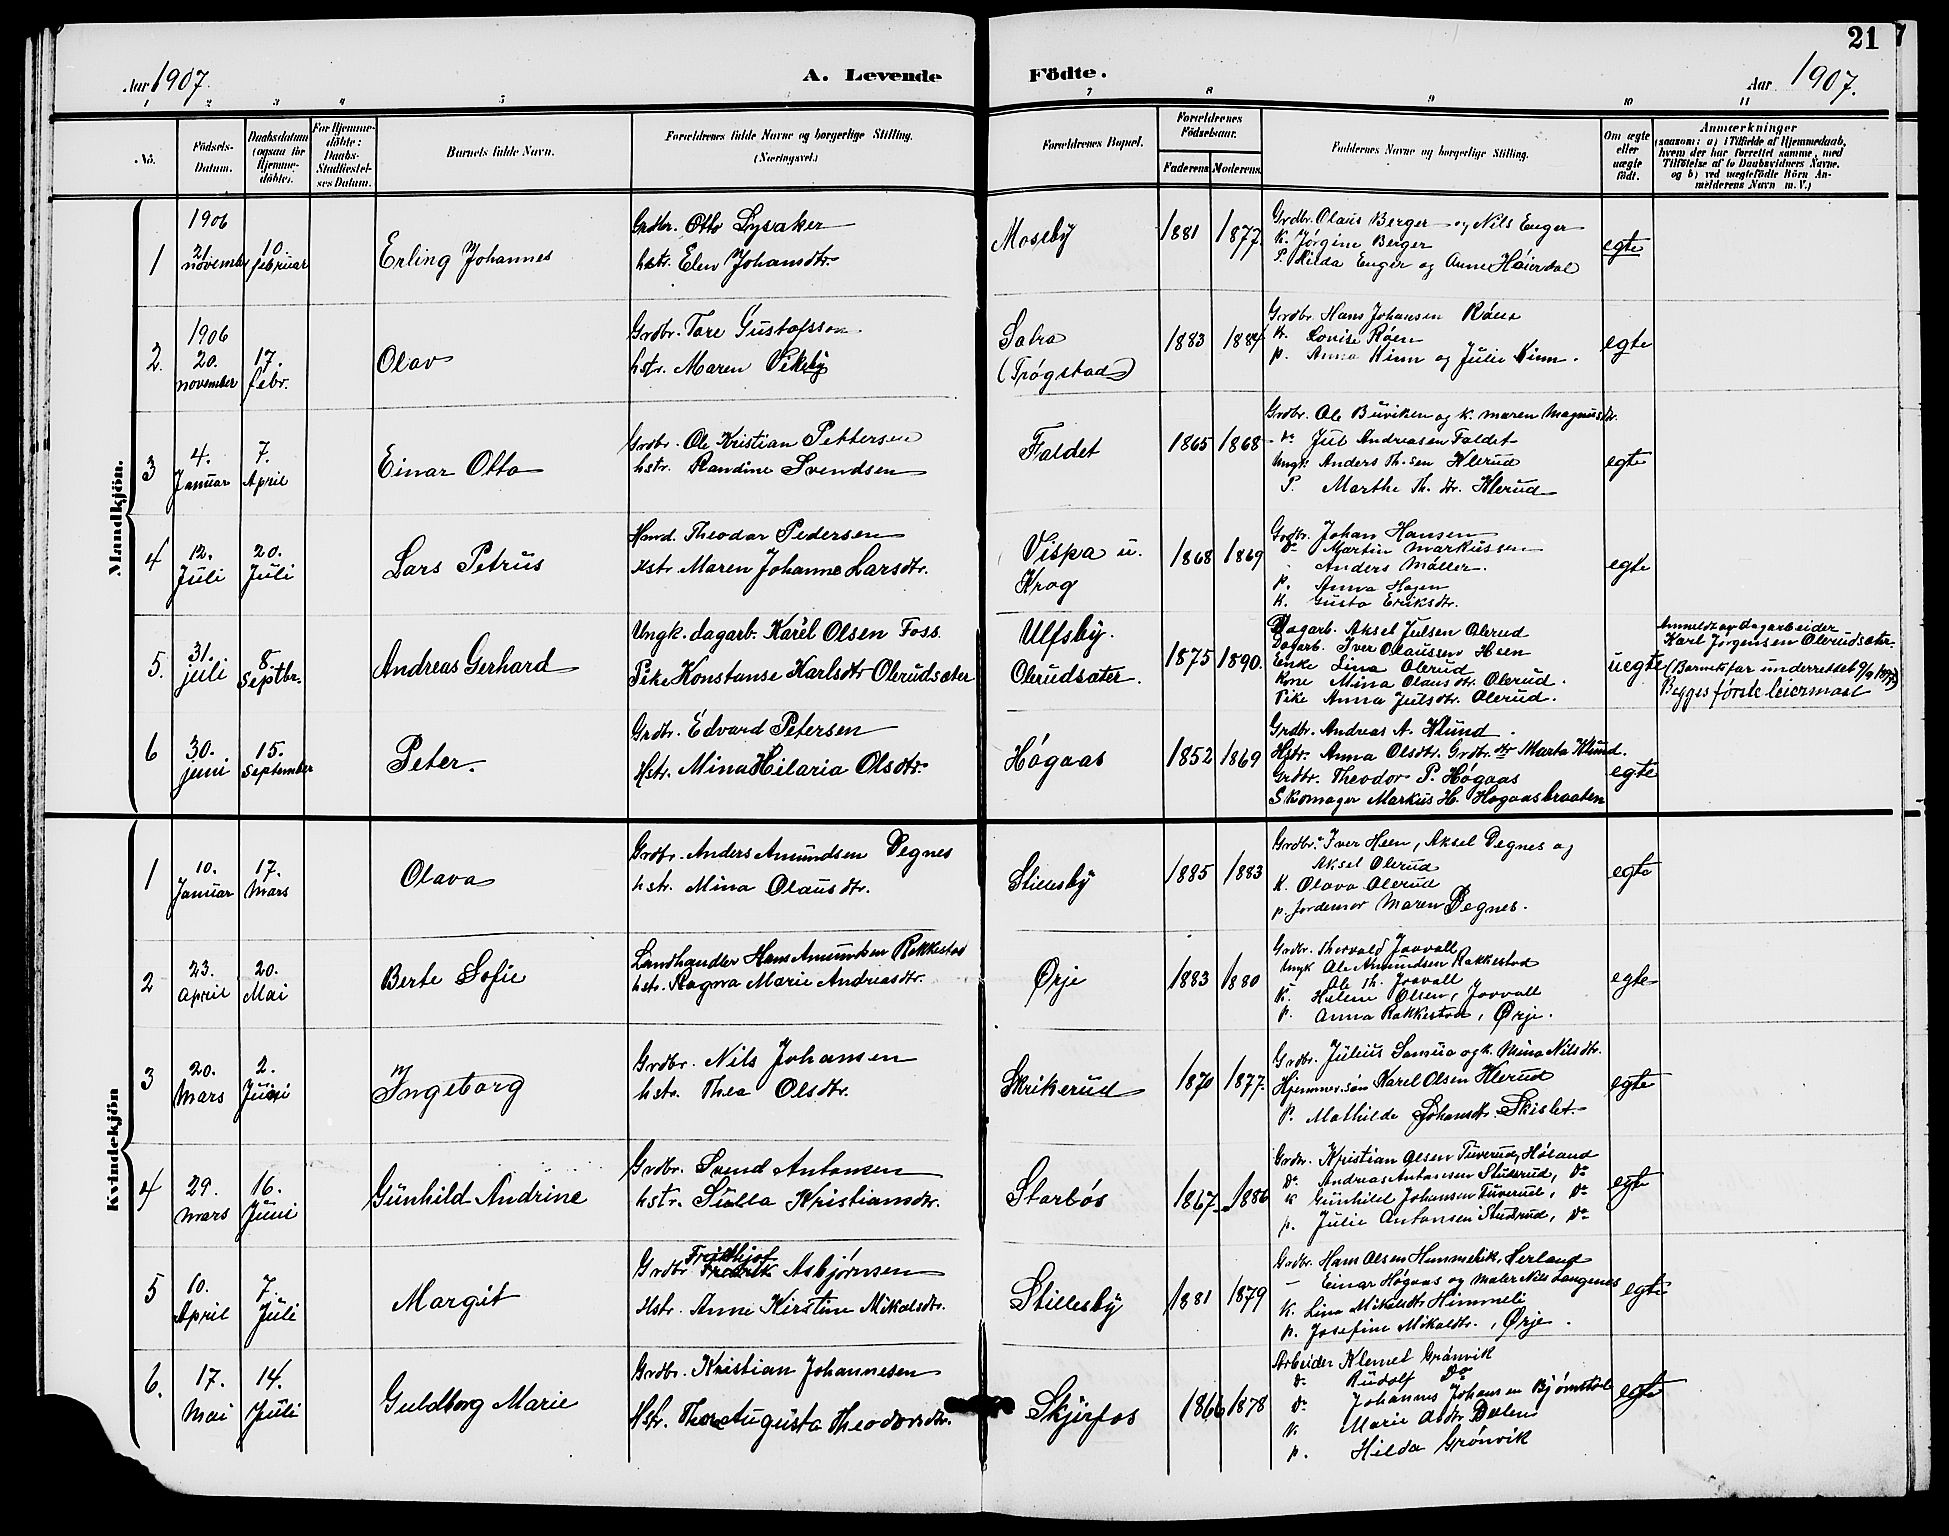 21
Aar 1907.
A. Levende Födte.
Aar 1907.
1 2 3 4 5 7 8 9 10 11
No.
Födsels-Datum.
Daabsdatum (ogsaa for Hjemme-döbte).
For Hjemme-döbte: Daabs-Stadfæstel-ses Datum.
Barnets fulde Navn.
Forældrenes fulde Navne og borgerlige Stilling. (Næringsvei.)
Forældrenes Bopæl.
Forældrenes Födselsaar.
Faderens Moderens
Faddernes Navne og borgerlige Stilling.
Om ægte eller uægte födt.
Anmærkninger
(saasom: a) i Tilfælde af Hjemmedaab, hvem der har forrettet samme, med Tilföielse af to Daabsvidners Navne. og b) ved uægtefödte Börn An-melderens Navn m. V.)
Mandkjön.
1
1906
21 novemb
10 februar
Erling Johannes
Grdbr. Otto Lysaker
hstr. Elen Johansdtr.
Moseby
1881 1877.
Grdbr. Olaus Berger og Nils Enger
K. Jørgine Berger
P. Hilda Enger og Anne Haierdal
egte
2.
1906
20. november
17. febr.
Olav
Grdbr. Tore Gustafsson
hstr. Maren Vikeby
Sabra
(Trøgstad)
1883 1884
Grdbr. Hans Johansen Röen
K. Lovise Röen
p. Anna Kinn og Julie Kinn.
egte
3
4. Januar
7. April
Einar Otto
Grdbr. Ole Kristian Pettersen
hstr. Randine Svendsen
Faldet
1865 1868
Grdbr. Ole Buviken og K. Maren Magnusdtr.
do Jul Andreasen Faldet
Ungk. Anders Th.sen Klerud
P. Marthe Th. dtr. Klerud
egte
4
12. Juli
20. Juli
Lars Petrus
Hmd. Theodor Pedersen
Hstr. Maren Johanne Larsdtr.
Vispa u.
Krog
1868 1869
Grdbr. Johan Hansen
do Martin Markussen
Anders Møller.
p. Anna Hagen
K. Gusta Eriksdtr.
egte
5.
31. juli
8. Septbr.
Andreas Gerhard
Ungk. dagarb. Karel Olsen Foss
Pike Konstanse Karlsdtr Olerudsæter
Ulfsby.
Olerudsæter.
1875 1890.
Dagarb. Aksel Julsen Olerud
Dagarb. Iver Olaussen Heen
Enke Lina Olerud
Kone Mina Olausdtr. Olerud.
Pike Anna Julsdtr. Olerud.
uegte
Anmeldt av dagarbeider
Karl Jørgensen Olerudsæter.
(Barnets far underrettet 9/9 1907)
Begges første leiermaal
6
30. juni
15. september
Peter.
Grdbr. Edvard Petersen
Hstr. Mina Hilaria Olsdtr.
Høgaas
1852 1869
Grdbr. Andreas A. Klund.
Hstr. Anna Olsdtr. Grdbr. dtr Marta Klund.
Grdbr. Theodor P. Høgaas
Skomager Markus H. Høgaasbraaten
egte
Kvindekjön
1
10. Januar
17. Mars
Olava
Grdbr. Anders Amundsen Degnes
hstr. Mina Olausdtr.
Stillesby
1885 1883
Grdbr. Iver Heen, Aksel Degnes og
Aksel Olerud
K. Olava Olerud
p. Jordemor Maren Degnes.
egte
2
23. April
20. Mai
Berte Sofie
Landhandler Hans Amundsen Rakkestad
hstr. Ragna Marie Andreasdtr.
Ørje
1883 1880
Grdbr. Thorvald Joovall
Ungk Ole Amundsen Rakkestad
Ole Th. Joovall
K. Helene Olsen, Joovall
p. Anna Rakkestad, Ørje.
egte
3
20. Mars
2. Juni
Ingeborg
Grdbr. Nils Johansen
hstr. Thea Olsdtr.
Skrikerud
1870 1877.
Grdbr. Julius Samua og K. Mina Nilsdtr.
Hjemmev. søn Karel Olsen Klerud
P. Mathilde Johansdtr. Skislet.
egte
4
29. mars
16. Juni
Gunhild Andrine
Grdbr. Svend Antonsen
hstr. Sialla Kristiansdtr.
Starbøs
1867 1886
Grdbr. Kristian Olsen Tuverud, Høland
do Andreas Antonsen Studerud, do
K Gunhild Johansen Tuverud, do
p. Julie Antonsen Studerud, do
egte
5
10. April
7. Juli
Margit
Grdbr. Fridthjof Asbjørnsen
Hstr. Anne Kirstine Mikalsdtr.
Stillesby
1881 1879
Grdbr. Hans Olsen Hummelvik, Herland
– Einar Høgaas og Maler Nils Langnes
K. Lina Mikalsdtr Himmeli
p. Josefine Mikaldtr., Ørje.
egte
6.
17. Mai
14. Juli
Guldborg Marie
Grdbr. Kristian Johannesen
Hstr. Thea Augusta Theodorsdtr.
Skjirfos
1866 1878
Arbeider Klemet Grønvik
do Rudolf do
do Johannes Johansen Bjørnstad
K Marie Dalen
p. Hilda Grønvik
egte